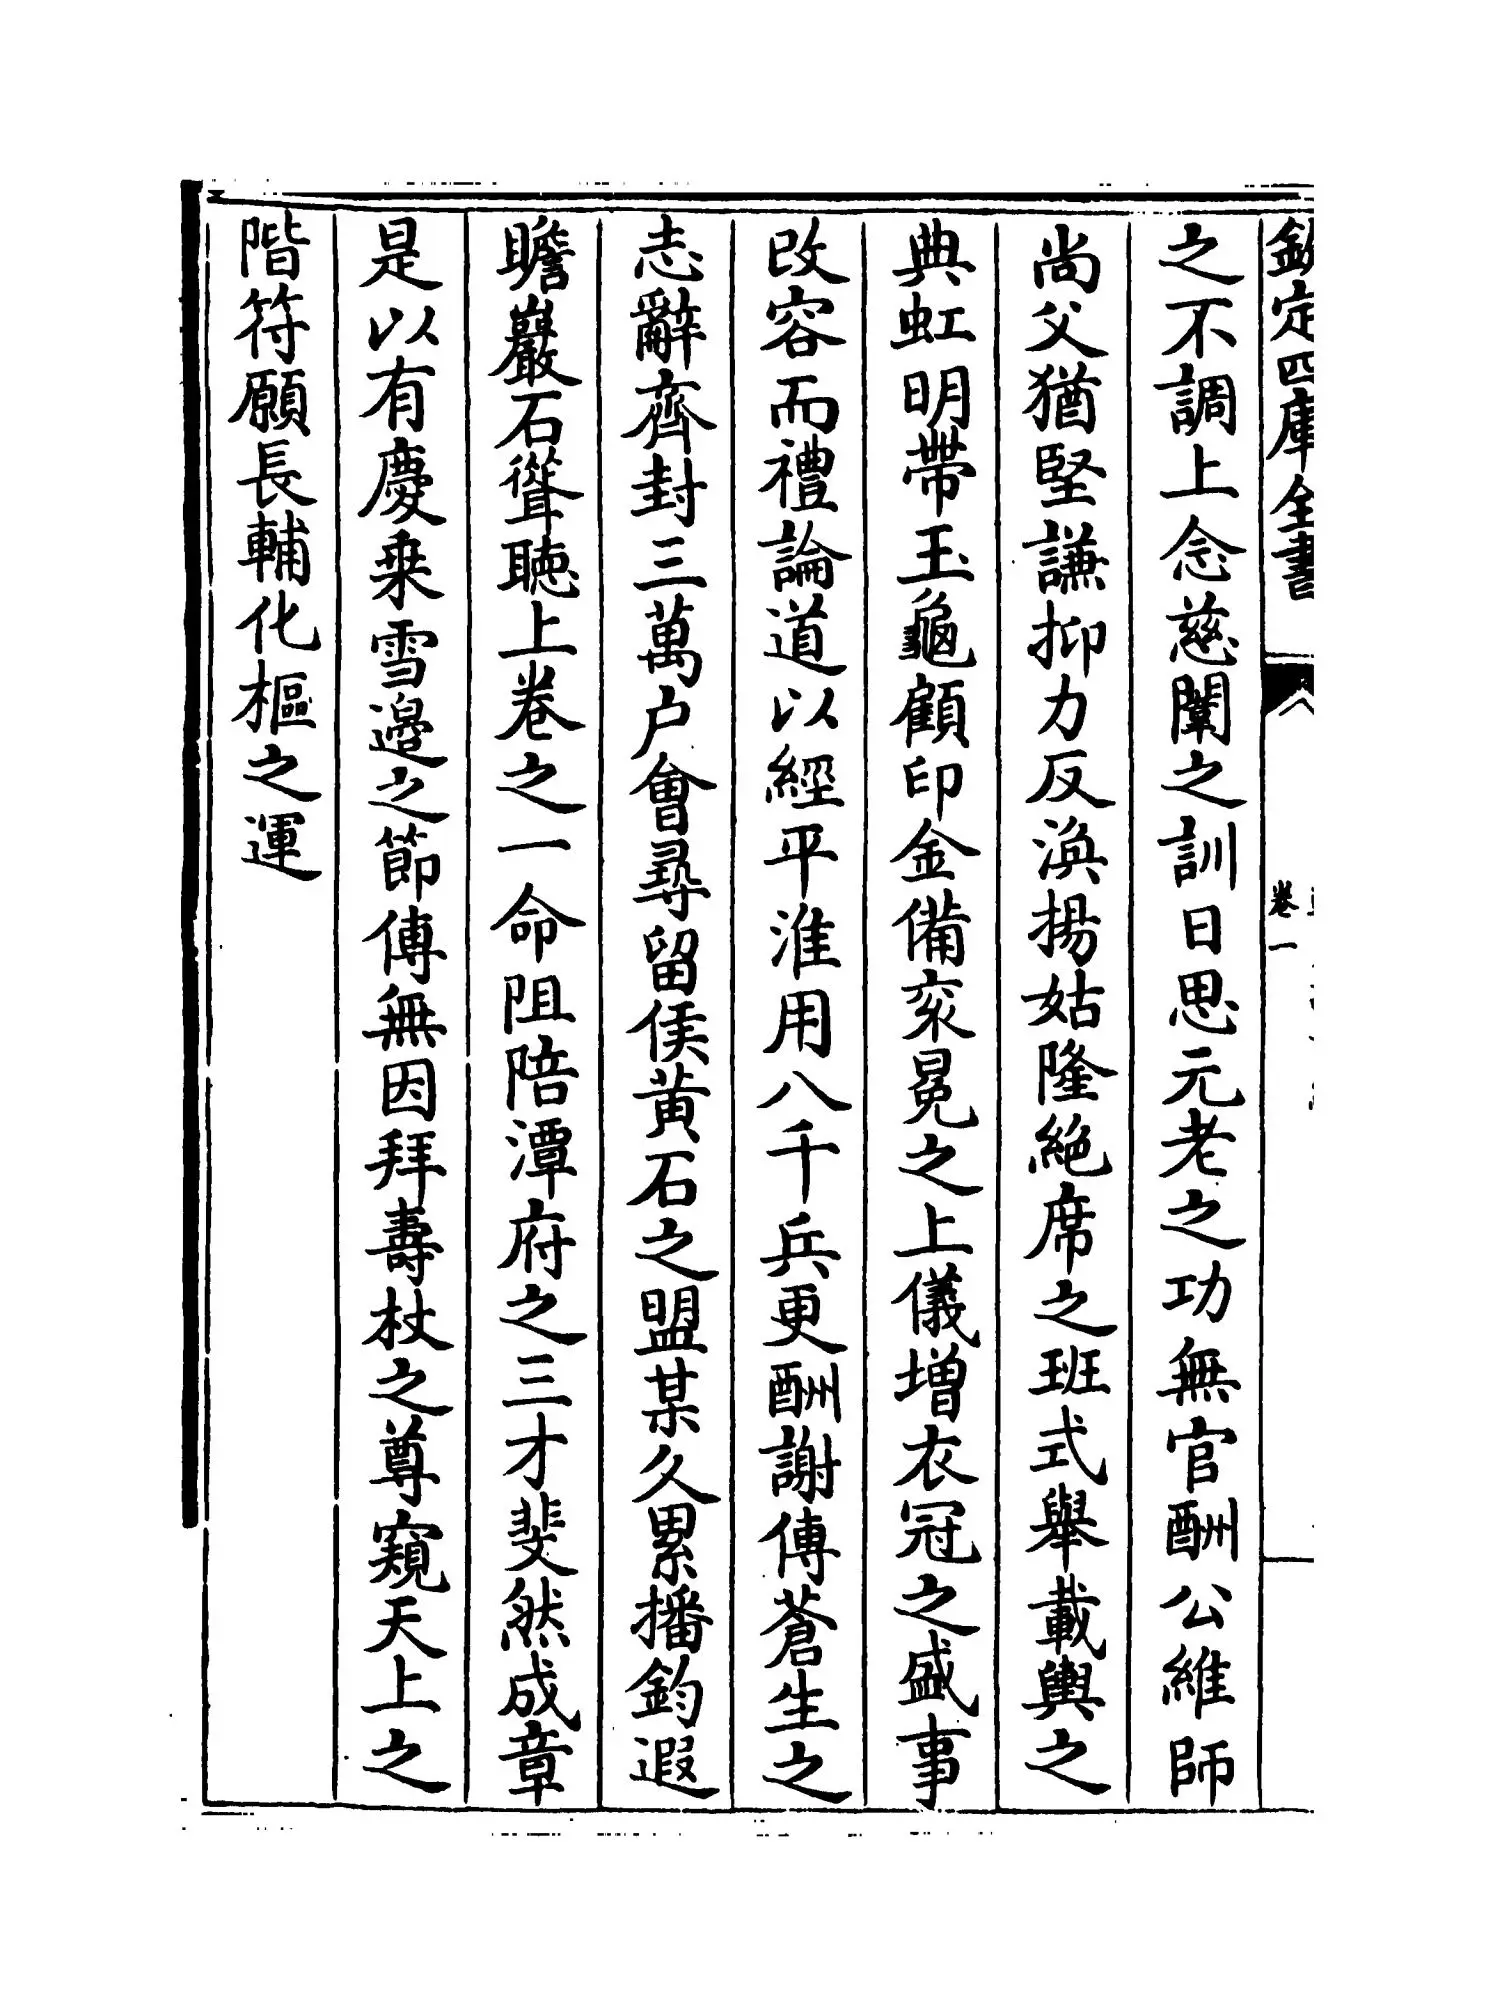 欽定四庫全書
卷一
之不調上念慈闈之訓日思元老之功無官酬公維師
尚父猶堅謙抑力反渙揚姑隆絶席之班式舉載輿之
典虹明帶玉龜顧印金備衮冕之上儀增衣冠之盛事
改容而禮論道以經平淮用八千兵更酬謝傅蒼生之
志辭齊封三萬户會尋留侯黄石之盟某久累播鈞遐
瞻巖石聳聽上卷之一命阻陪潭府之三才斐然成章
是以有慶乗雪邊之節傅無因拜壽杖之尊窺天上之
階符願長輔化樞之運